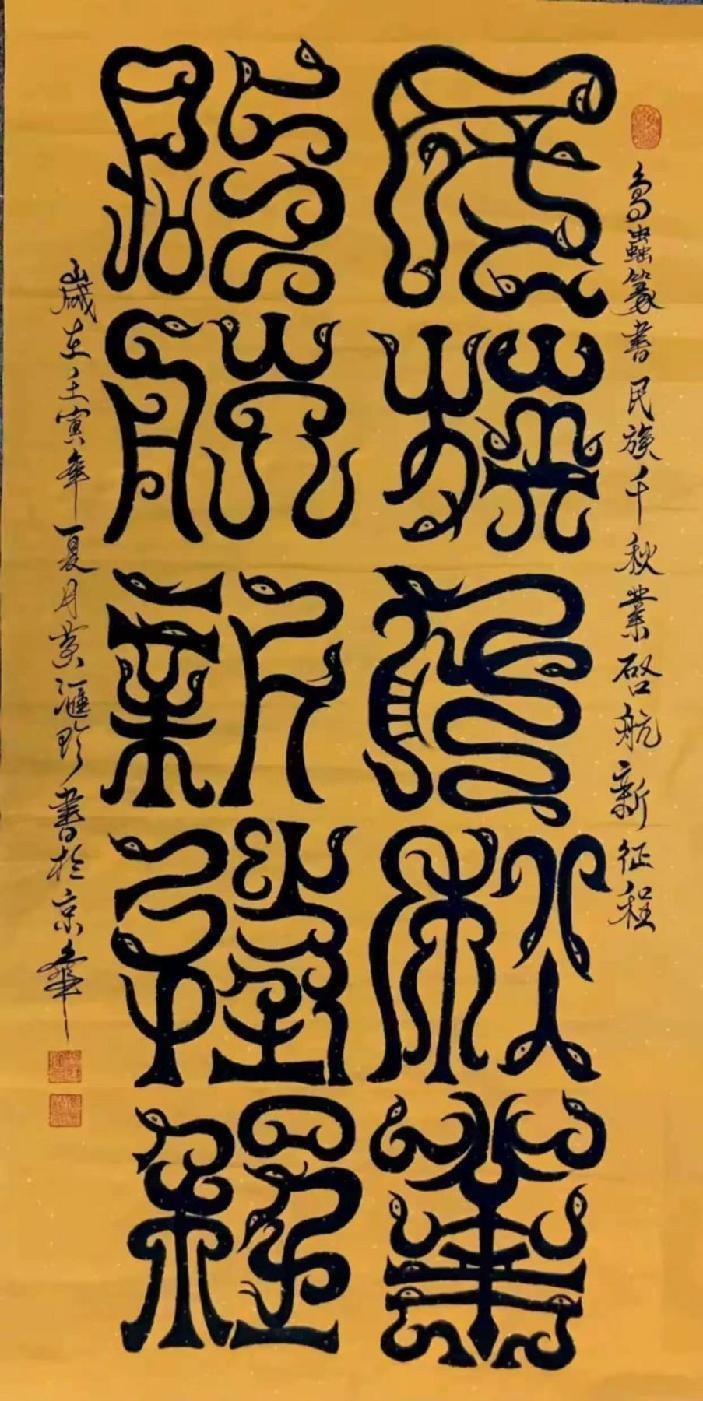 鳥蟲篆書民族千秋業啓航新征程
民族千秋業
啓航新征程
歲在壬寅年夏月黄滙珍書於京華